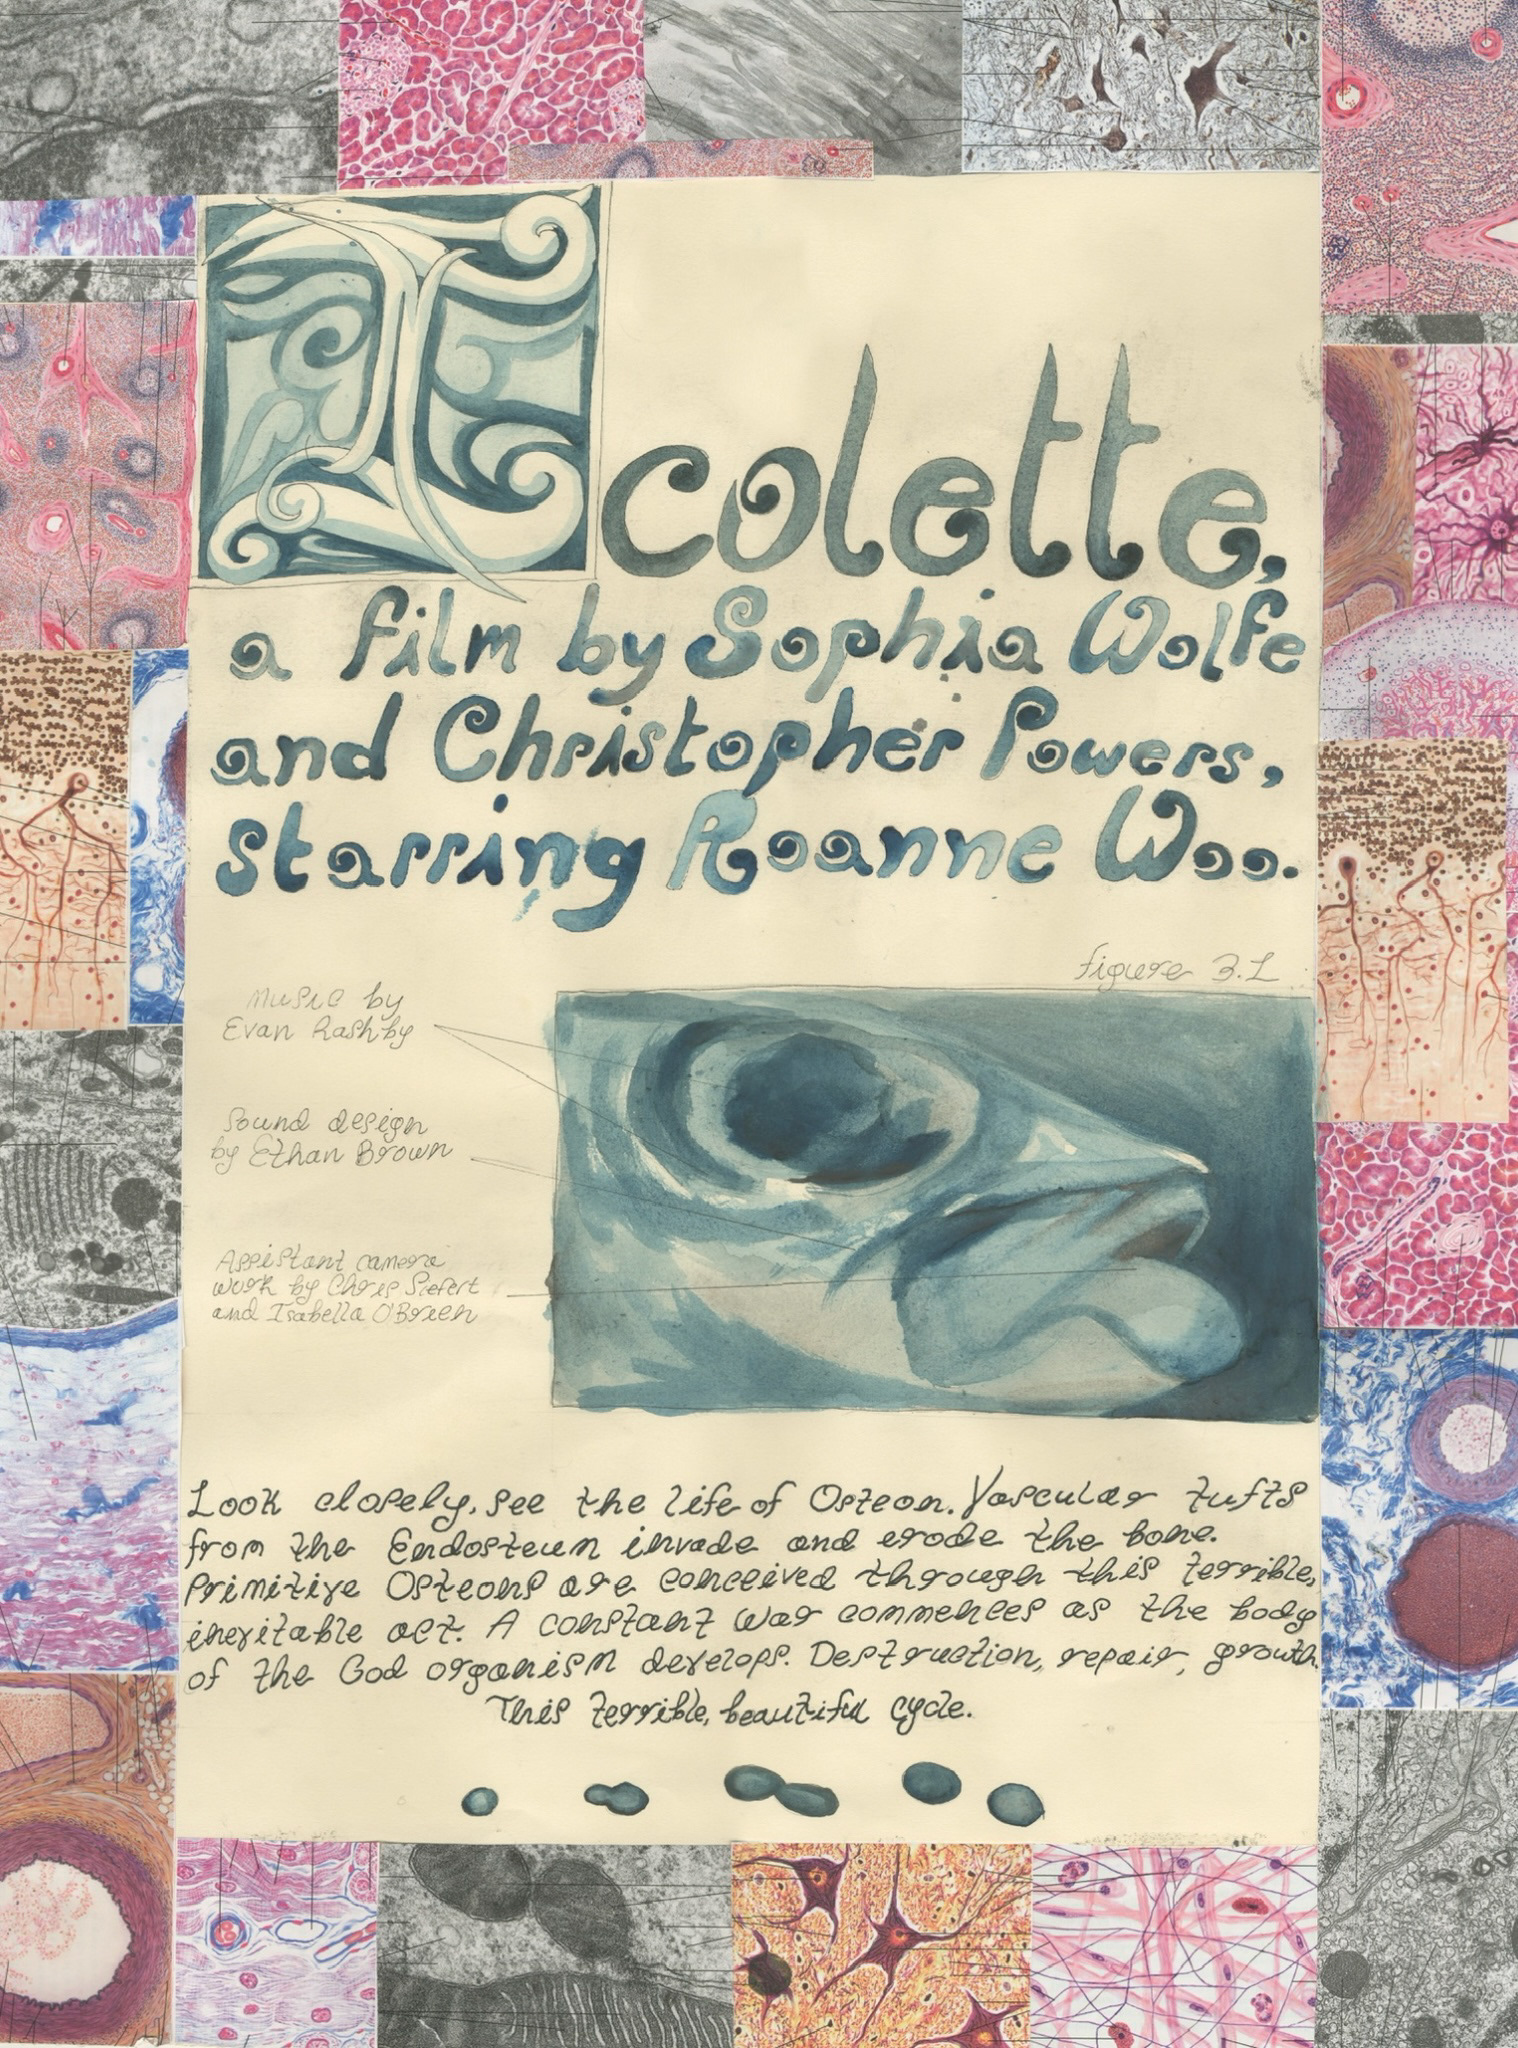 I colette,
a film by Sophia Wolfe
and Christopher Powers,
starring Roanne Woo.
figure 3.1
Music by
Evan Rashby
Sound design
by Ethan Brown
Assistant camera
work by Chris Siefert
and Isabella O'Breen
Look closely, see the life of Osteon. Vascular tufts
from the Endosteum invade and erode the bone.
Primitive Osteons are conceived through this terrible,
inevitable act. A constant war commences as the body
of the God organism develops. Destruction, repair, growth.
This terrible, beautiful cycle.